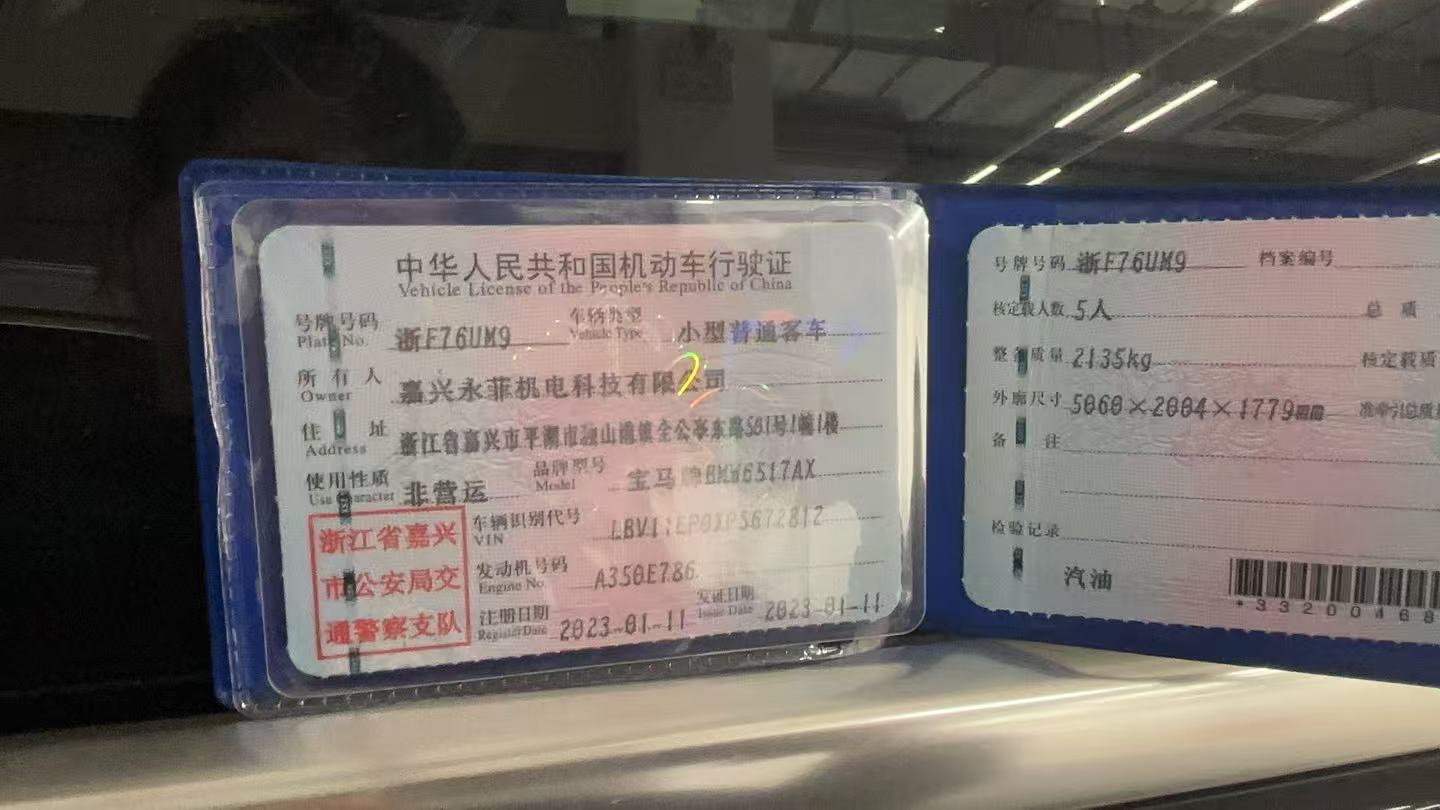 中华人民共和国机动车行驶证
Vehicle License of the People's Republic of China
号牌号码 浙F76UM9 车辆类型 小型普通客车
Plate No. Vehicle Type
所有人 嘉兴永菲机电科技有限公司
Owner
住址 浙江省嘉兴市平湖市独山港镇全公亭东路501号1幢1楼
Address
使用性质 非营运 品牌型号 宝马牌BMW6517AX
Use Character Model
浙江省嘉兴
市公安局交
通警察支队
车辆识别代号
VIN
发动机号码 A350E786
Engine No.
注册日期 2023-01-11 发证日期 2023-01-11
Register Date Issue Date
号牌号码 浙F76UM9 档案编号
核定载人数 5人 总质
整备质量 2135kg 核定载质
外廓尺寸 5060×2004×1779mm 准牵引总质
备注
检验记录
汽油
*33200468